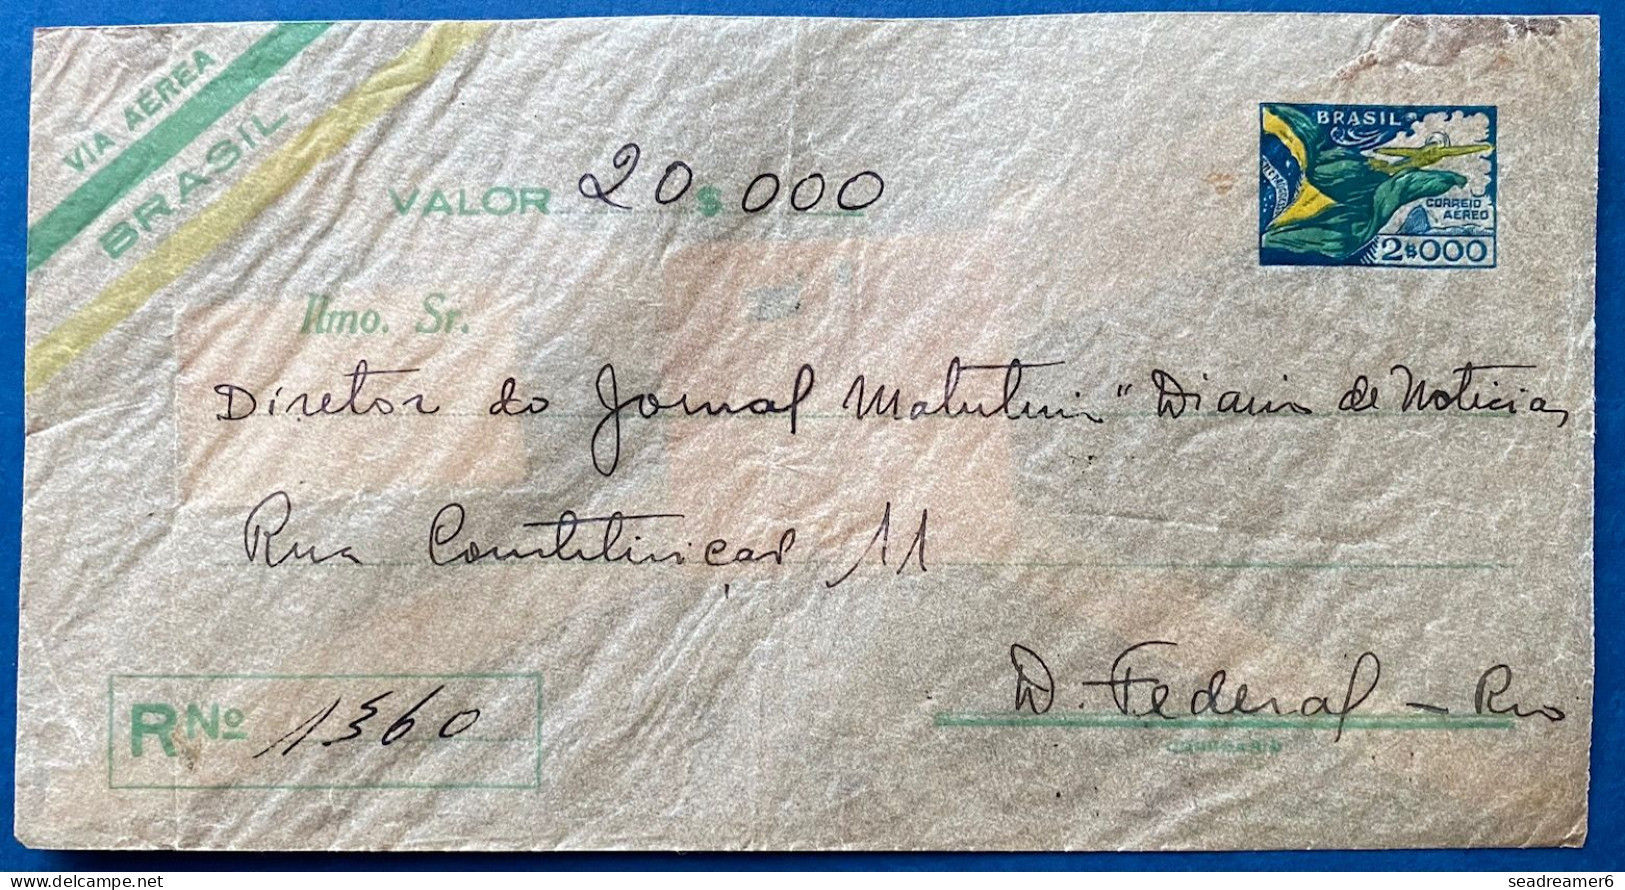 VIA AÉREA
BRASIL
VALOR 20 $ 000
BRASIL
CORREIO
AEREO
2$000
Ilmo. Sr.
Diretor do Jornal Matutino "Diario de Noticias,
Rua Constituição 11
D. Federal - Rio
R Nº 1360
delcampe.net
seadreamer6